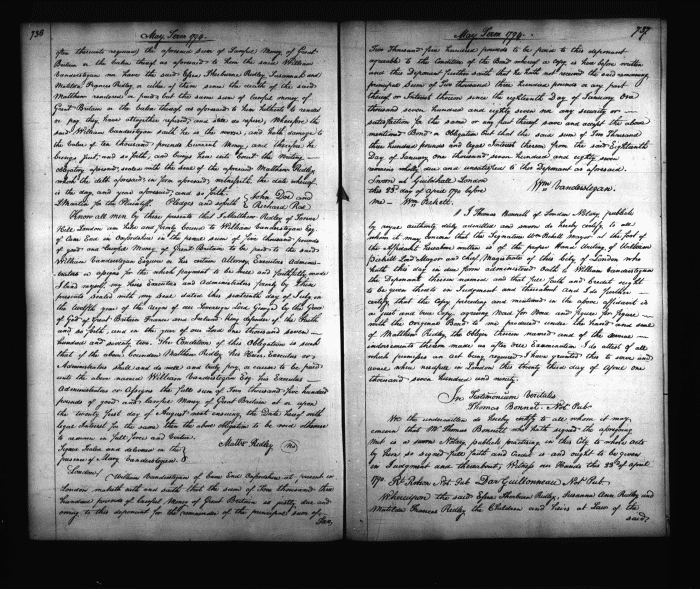 736
May Term 1794.
often thereunto required the aforesaid sum of Lawful Money of Great
Britain or the value thereof as aforesaid to him the said William
Vanderstegan or have the said Essex Sherburne Ridley Susannah and
Matilda Frances Ridley or either of them since the death of the said
Matthew rendered or paid but the same sum of Lawful money of
Great Britain or the value thereof as aforesaid to him hitherto to render
or pay they have altogether refused, and still do refuse; Wherefore the
said William Vanderstegan saith he is the worse, and hath damage to
the value of ten thousand pounds Current Money, and therefore he
brings suit, and so forth, and brings here into Court the writing
obligatory aforesaid, sealed with the Seal of the aforesaid Matthew Ridley
which the debt aforesaid in form aforesaid, witnesseth, the date whereof
is the day, and year aforesaid, and so forth.
for the Plaintiff. Pledges and so forth John Doe and
Richard Roe
Know all men by these presents that I Matthew Ridley of
Hill London am held and firmly bound to William Vanderstegan Esqr.
of Cane End in Oxfordshire in the penal sum of five thousand pounds
of good and lawful Money of Great Britain to be paid to the said
William Vanderstegan Esquire or his certain Attorney Executors Adminis-
trators or assigns for the which payment to be well and faithfully made
I bind myself, my Heirs Executors and Administrators firmly by these
presents sealed with my Seal dated this sixteenth day of July in
the twelfth year of the reign of our Sovereign Lord George by the Grace
of God of Great Britain France and Ireland King defender of the Faith
and so forth, and in the year of our Lord One thousand seven
hundred and seventy two. The Condition of this Obligation is such
that if the above bounden Matthew Ridley, his Heirs Executors or
Administrators shall and do well and truly pay, or cause to be paid
unto the above named William Vanderstegan Esqr. his Executors
Administrators or Assigns the full sum of Two thousand five hundred
pounds of good and lawful Money of Great Britain at or upon
the twenty first day of August next ensuing the Date hereof with
legal Interest for the same then the above obligation to be void otherwise
to remain in full force and virtue.
Signed Sealed and delivered in the Mattw. Ridley
presence of Mary Vanderstegan
London, William Vanderstegan of Cane End Oxfordshire at present in
London maketh oath and saith that the sum of Two thousand three
hundred pounds of lawful Money of Great Britain is justly due and
owing to this deponent for the remainder of the principal sum of
Two,
May Term 1794.
737
Two Thousand five hundred pounds to be paid to this deponent
agreeable to the Condition of the Bond whereof a Copy is here before written
and this Deponent further saith that he hath not received the said remaining
principal sum of Two thousand three hundred pounds or any part
thereof or Interest thereon since the eighteenth Day of January One
thousand seven hundred and eighty seven nor any security or
satisfaction for the same or any part thereof save and except the above
mentioned Bond or Obligation but that the said sum of Two Thousand
three hundred pounds and legal Interest thereon from the said Eighteenth
Day of January one thousand seven hundred and eighty seven
remains wholly due and unsatisfied to this Deponent as aforesaid.
Sworn at Guildhall London
this 23d. day of April 1790 before Wm. Vanderstegan.
me - Wm. Pickett.
I Thomas Bonnet of London Notary publick
by royal authority duly admitted and sworn do hereby certify to all
whom it may concern that the Signature Wm. Pickett Mayor at the foot of
the Affidavit hereabove written is of the proper Hand Writing of William
Pickett Lord Mayor and chief Magistrate of this City of London who
hath this day in due form administered Oath to William Vanderstegan
the Deponent therein named and that full faith and Credit ought
to be given thereto in Judgment and thereout and I do further
certify that the Copy preceding and mentioned in the above affidavit is
a just and true Copy, agreeing Word for Word and figure for figure
with the original Bond to me produced under the Hand and seal
of Matthew Ridley the Obligor therein named and of the several
indorsements thereon made as after due Examination I do attest of all
which premises an act being required I have granted this to serve and
avail when needful in London this twenty third day of April one
thousand seven hundred and ninety.
In Testimonium Veritatis
Thomas Bonnet. Not. Pub.
We the undersigned do hereby certify to all whom it may
concern that Mr. Thomas Bonnet who hath signed the aforegoing
Act is a sworn Notary publick practising in this City to whose acts
by him so signed full faith and Credit is and ought to be given
in Judgment and thereout, Witness our Hands this 23d. of April
1790 Not. Pub. Dan Guillonneau Not. Pub.
Whereupon the said Essex Sherburne Ridley, Susanna Ann Ridley and
Matilda Frances Ridley, the Children and heirs at Law of the
said,